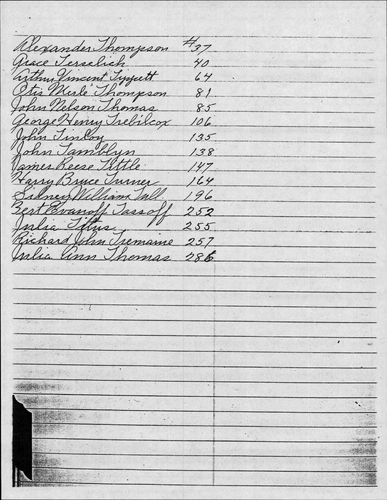 Alexander Thompson #37
Grace Terselich 40
Arthur Vincent Tippett 64
Otis Merle Thompson 81
John Nelson Thomas 85
George Henry Trebilcox 106
John Tinloy 135
John Tamblyn 138
James Reese Tittle 147
Harry Bruce Turner 164
Sidney William Tall 196
Bert Evanoff Tassoff 252
Julia Titus 255
Richard John Tremaine 257
Julia Ann Thomas 286